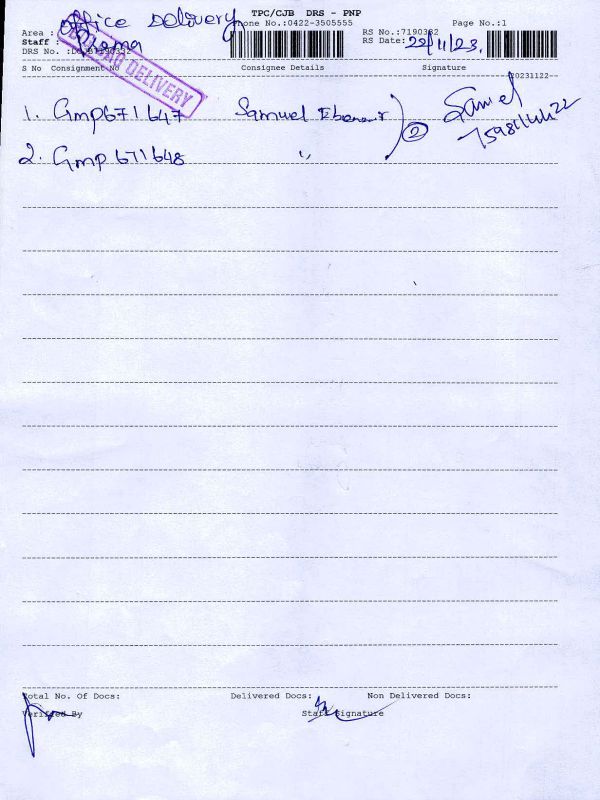 office Delivery
TPC/CJB DRS - PNP
Phone No.:0422-3505555
Page No.:1
Area :
RS No.:7190332
Staff :
RS Date: 22/11/23
DRS No. :
DELIVERY
S No Consignment No Consignee Details Signature
20231122--
1. Gmp671647 Samuel 2 Samuel
2. Gmp 671648 "
Total No. Of Docs: Delivered Docs: Non Delivered Docs:
Verified By Staff Signature